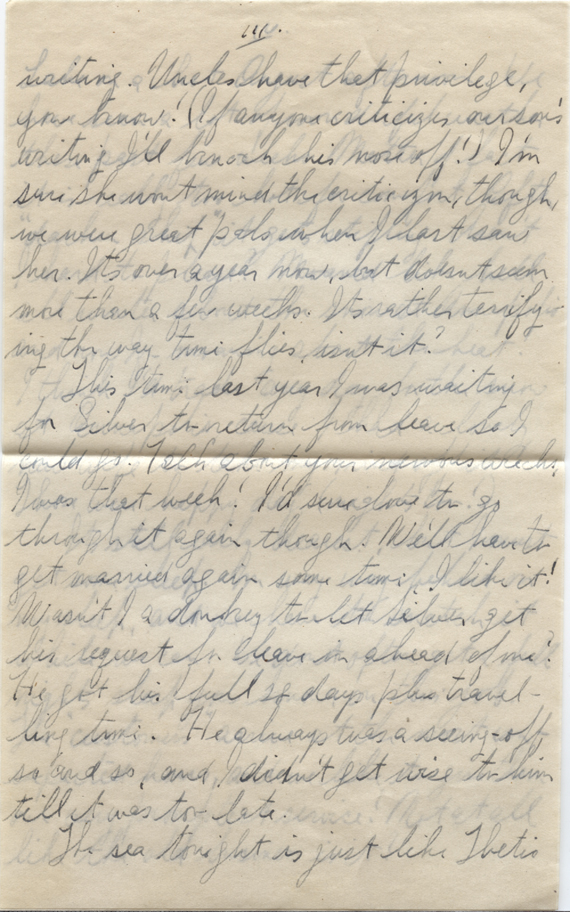 111.
writing. Uncles have that privilege,
you know! (If anyone criticizes our son's
writing I'll knock his nose off!) I'm
sure she won't mind the criticizm, though,
we were great "pals" when I last saw
her. It's over a year now, but doesn't seem
more than a few weeks. It's rather terrify-
ing the way time flies, isn't it?
This time last year I was waiting
for Silver to return from leave so I
could go. Talk about your nervous wreck,
I was that week! I'd sure love to go
through it again though! We'll have to
get married again some time. I like it!
Wasn't I a donkey to let Silver get
his request for leave in ahead of me?
He got his full days plus travel-
ling time. He always was a seeing-off
so and so, and I didn't get wise to him
till it was too late.
The sea tonight is just like Thetis